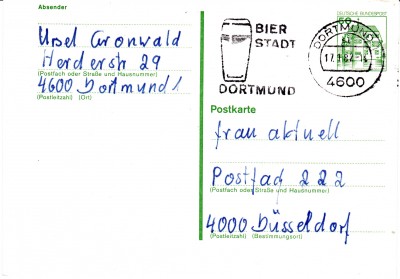 Absender
Ursel Gronwald
Herderstr 29
(Postfach oder Straße und Hausnummer)
4600 Dortmund 1
(Postleitzahl) (Ort)
BIER
STADT
DORTMUND
DORTMUND
4600
60
DEUTSCHE BUNDESPOST
Postkarte
frau aktuell
Postfach 222
(Postfach oder Straße und Hausnummer)
4000 Düsseldorf
(Postleitzahl) (Bestimmungsort)